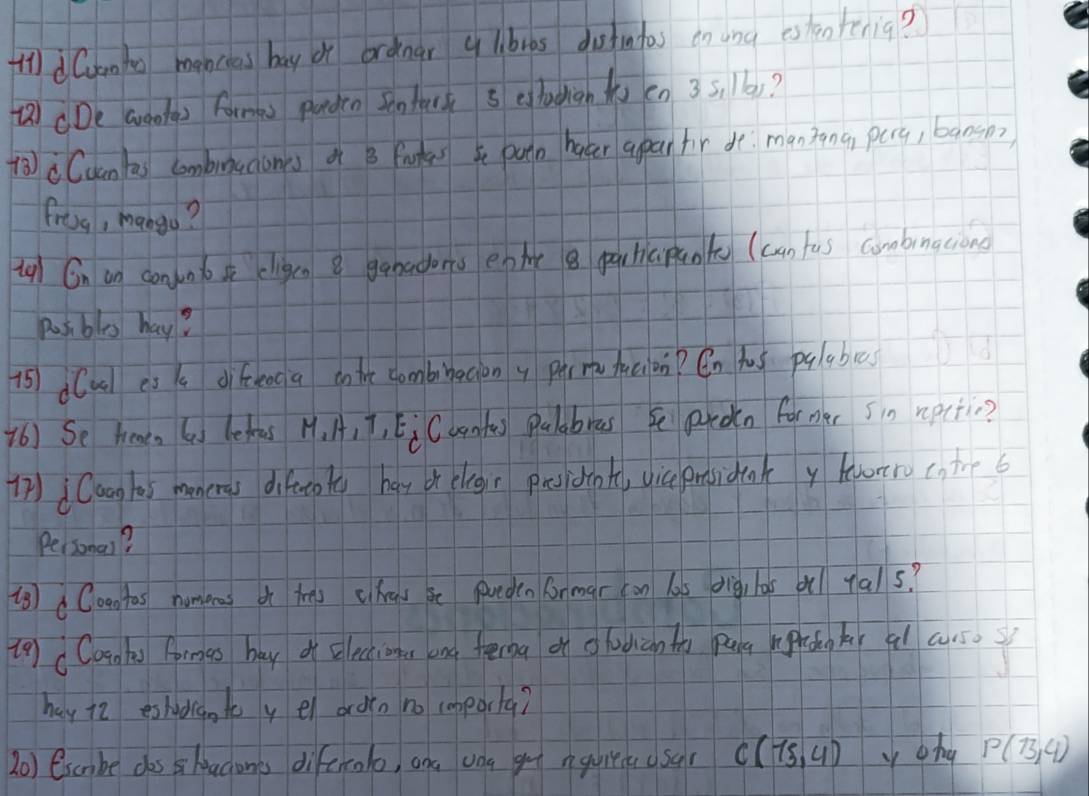 11) ¿Cuantas mancias hay de ordenar 4 libros distintos en una estanteria?
12) ¿De cuantas formas pueden sentarse 3 estudiantes en 3 sillas?
13) ¿Cuantas combinaciones de 3 frutas se puen hacer apartir de: manzana, pera, banano,
fresa, mango?
14) En un conjunto se eligen 8 ganadores entre 8 participantes (cuantas combinaciones
posibles hay?
15) ¿Cual es la diferencia entre combinacion y permutacion? En tus palabras
16) Se tienen las letras M, A, T, E ¿Cuantas palabras se pueden formar sin repetir?
17) ¿Cuantas maneras diferentes hay de elegir presidente, vicepresidente y tesorero entre 6
personas?
18) ¿Cuantos numeros de tres cifras se pueden formar con los digitos del 1 al 5?
19) ¿Cuantas formas hay de seleccionar una terna de estudiantes para representar al curso si
hay 12 estudiantes y el orden no importa?
20) Escribe dos situaciones diferentes, una que requiera usar C(15,4) y otra P(13,4)